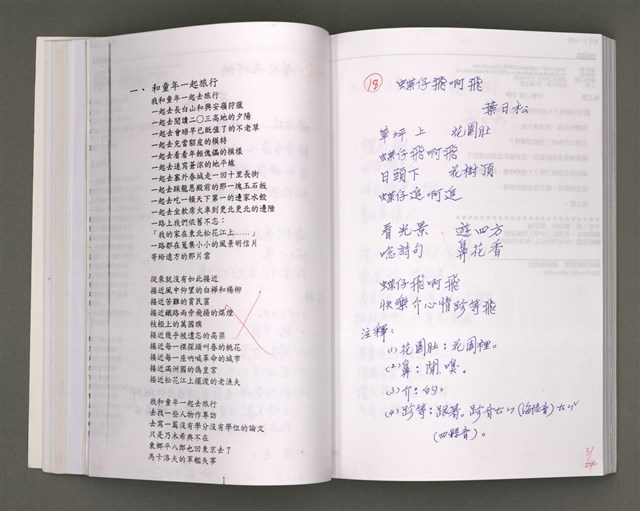 一、和童年一起旅行
我和童年一起去旅行
一起去長白山和興安嶺狩獵
一起去閱讀二〇三高地的夕陽
一起去會晤早已貶值了的不老草
一起去充當貂皮的模特
一起去看看年輕傀儡的模樣
一起去迷寫蒼涼的地平線
一起去塞外春城走一回十里長街
一起去踩龍恩殿前的那一塊玉石板
一起去吃一頓天下第一的邊家水餃
一起去坐軟席大車到更北更北的邊陲
一路上我們依舊不忘：
「我的家在東北松花江上……」
一路都在蒐集小小的風景明信片
寄給遠方的那片雲
從來就沒有如此接近
接近風中仰望的白樺和楊柳
接近苦難的貧民窟
接近鐵路兩旁飛揚的煤煙
枝椏上的萬國旗
接近幾乎被遺忘的高粱
接近每一棵探頭叫春的桃花
接近每一座吶喊革命的城市
接近滿洲國的偽皇宮
接近松花江上擺渡的老漁夫
我和童年一起去旅行
去找一些人物作專訪
去寫一篇沒有學分沒有學位的論文
只是乃木希典不在
東鄉平八郎也回東京去了
馬卡洛夫的軍艦失事
18 蝶仔飛啊飛
葉日松
草坪上 花園肚
蝶仔飛啊飛
日頭下 花樹頂
蝶仔追啊追
看光景 遊四方
唸詩句 鼻花香
蝶仔飛啊飛
快樂介心情跈等飛
注釋：
(1)花園肚：花園裡。
(2)鼻：聞嗅。
(3)介：的。
(4)跈等：跟著。跈音ㄊㄣˋ(海陸音)ㄊㄣˇ
(四縣音)。